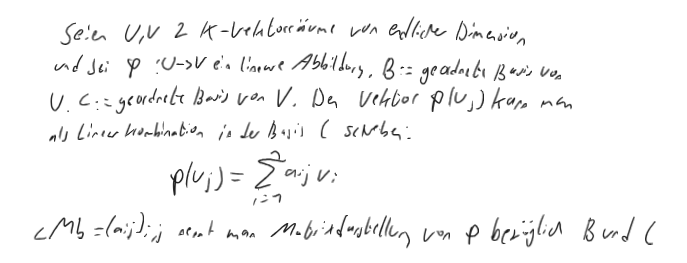 Seien U,V 2 K-Vektorräume von endlicher Dimension
und sei φ : U->V eine lineare Abbildung. B := geordnete Basis von
U. C := geordnete Basis von V. Der Vektor φ(u_j) kann man
als Linearkombination in der Basis C schreiben:
φ(u_j) = ∑_{i=1}^{n} a_{ij} v_i
_C M_b = (a_{ij})_{i,j} nennt man Matrixdarstellung von φ bezüglich B und C